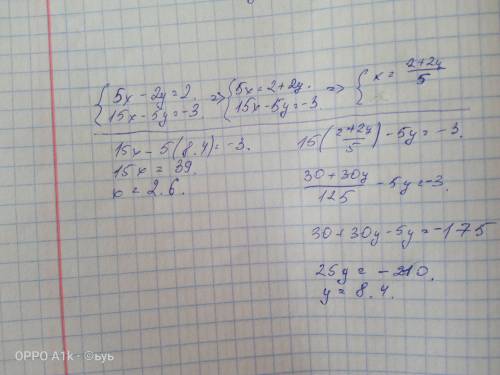 { 5x - 2y = 2. => { 5x = 2 + 2y. => { x = (2+2y)/5
15x - 5y = -3. 15x - 5y = -3.
15x - 5(8.4) = -3.
15x = 39.
x = 2.6.
15((2+2y)/5) - 5y = -3.
(30 + 30y)/125 - 5y = -3.
30 + 30y - 5y = -175
25y = -210.
y = 8.4.
OPPO A1k · ©ъуь